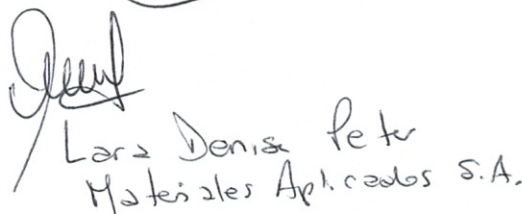 Lara Denise Peter
Materiales Aplicados S.A.